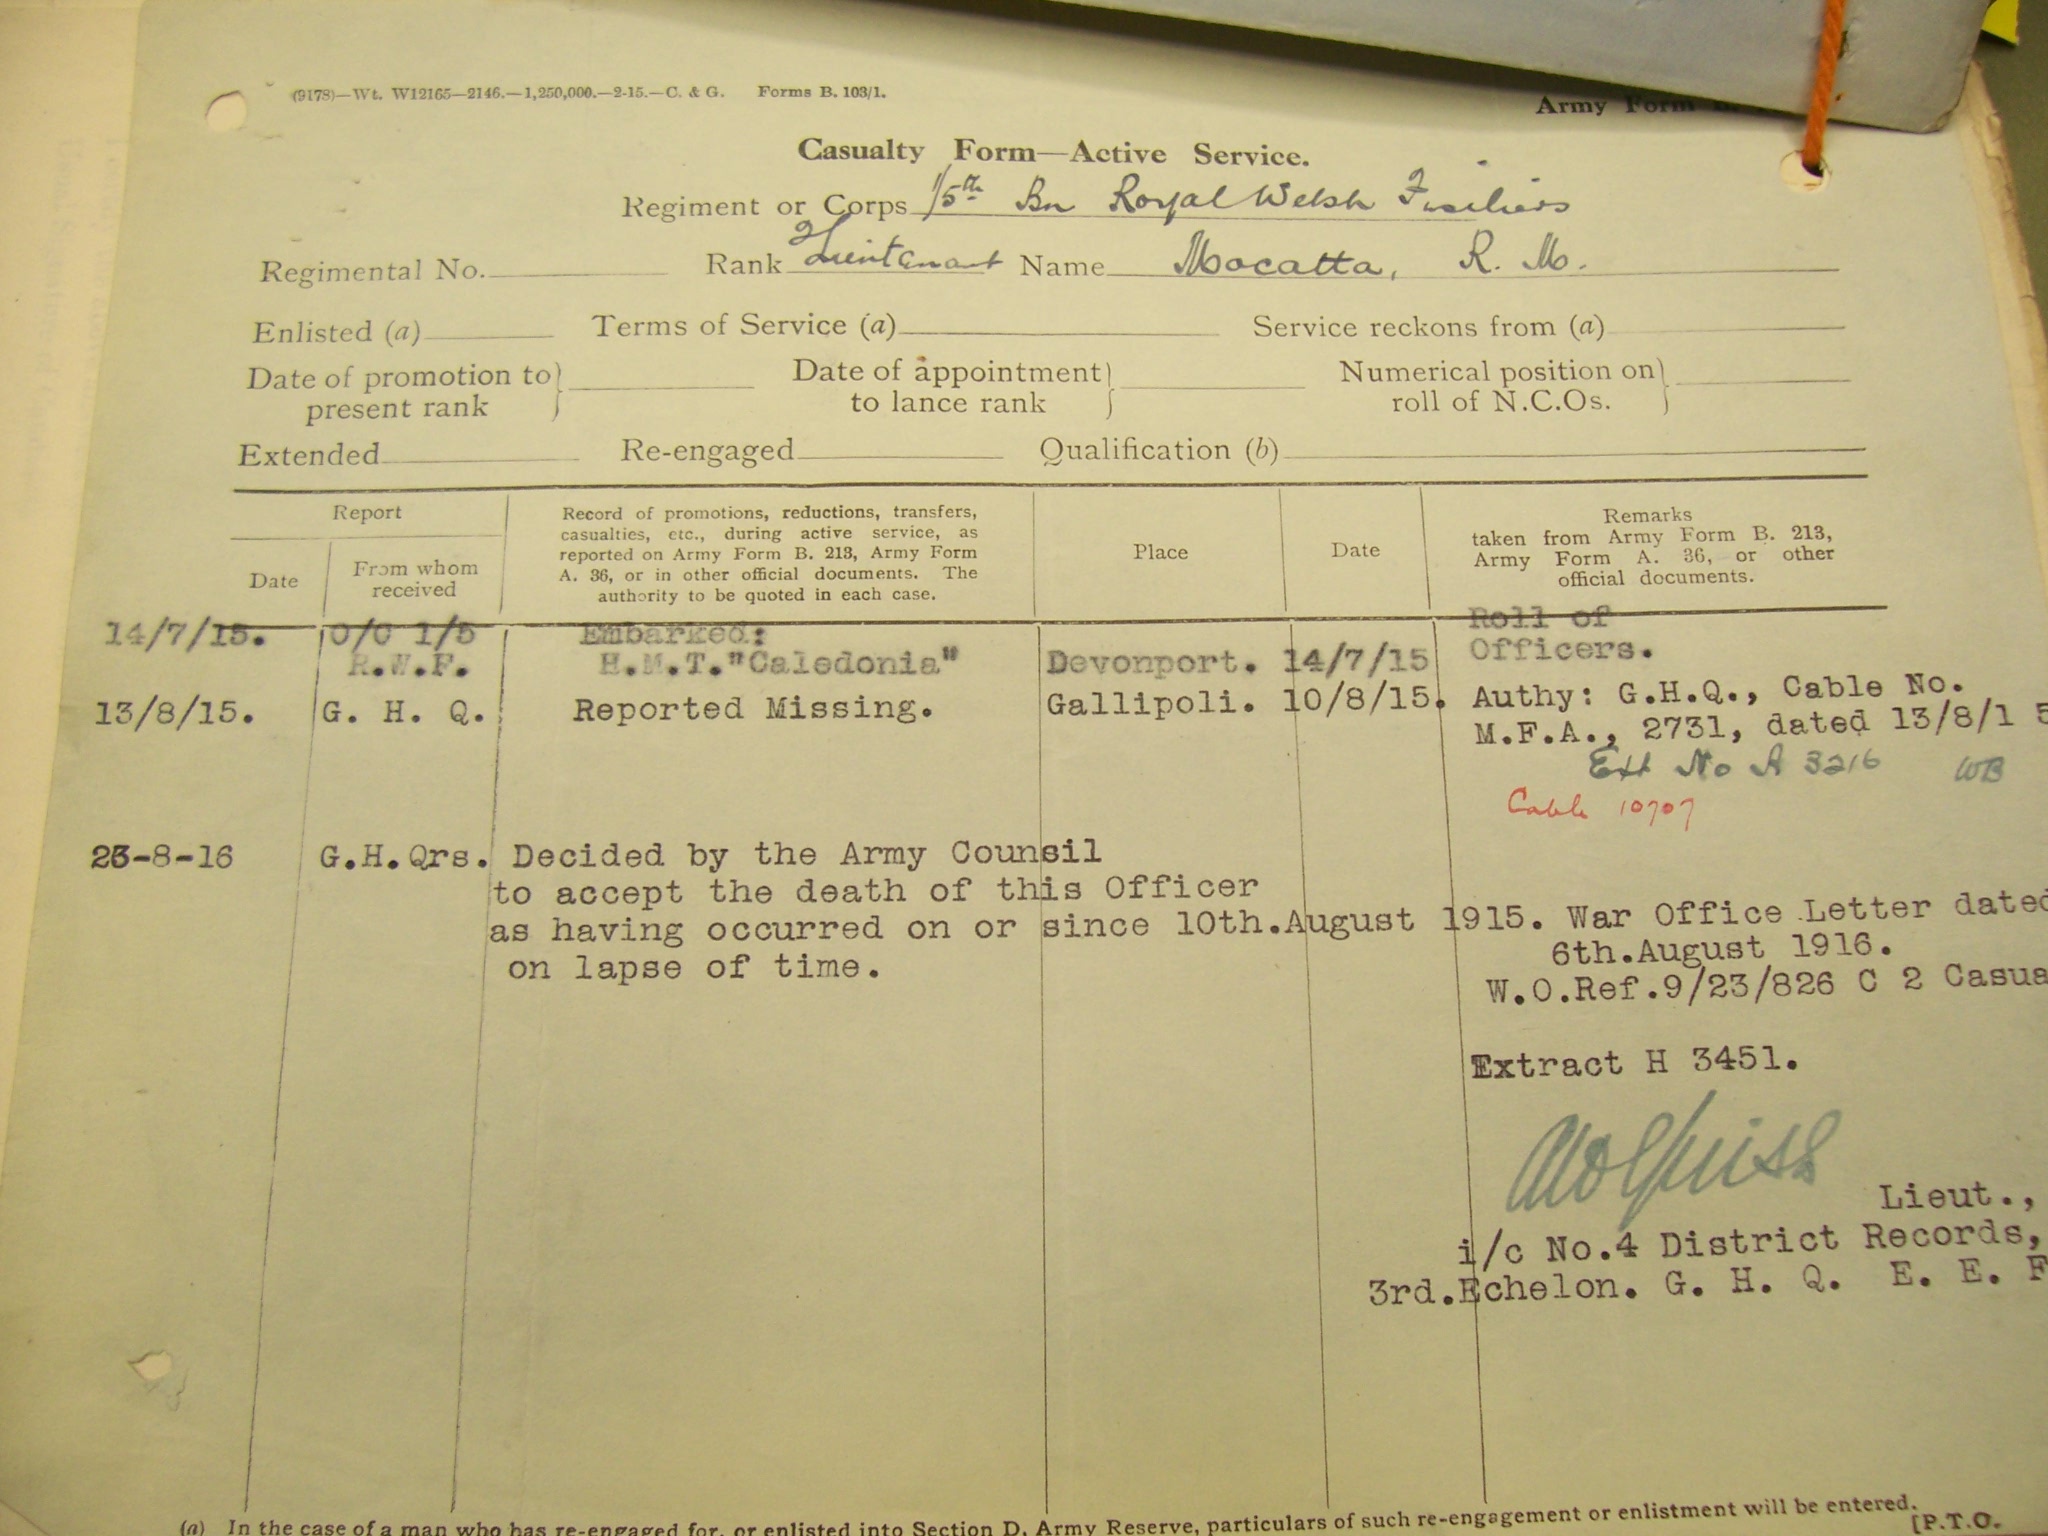 (9178)—Wt. W12165—2146.—1,250,000.—2-15.—C. & G. Forms B. 103/1.
Army Form B.
Casualty Form—Active Service.
Regiment or Corps 1/5th Bn Royal Welsh Fusiliers
Regimental No. Rank Lieutenant Name Mocatta, R. M.
Enlisted (a) Terms of Service (a) Service reckons from (a)
Date of promotion to present rank } Date of appointment to lance rank } Numerical position on roll of N.C.Os. }
Extended Re-engaged Qualification (b)
Report
Date
From whom received
Record of promotions, reductions, transfers,
casualties, etc., during active service, as
reported on Army Form B. 213, Army Form
A. 36, or in other official documents. The
authority to be quoted in each case.
Place
Date
Remarks
taken from Army Form B. 213,
Army Form A. 36, or other
official documents.
14/7/15. O/C 1/5 Embarked: Roll of
R.W.F. H.M.T."Caledonia" Devonport. 14/7/15 Officers.
13/8/15. G. H. Q. Reported Missing. Gallipoli. 10/8/15. Authy: G.H.Q., Cable No.
M.F.A., 2731, dated 13/8/1 5
Ext No A 3216 WB
Cable 10707
23-8-16 G.H.Qrs. Decided by the Army Counsil
to accept the death of this Officer
as having occurred on or since 10th.August 1915. War Office Letter dated
on lapse of time. 6th.August 1916.
W.O.Ref.9/23/826 C 2 Casua
Extract H 3451.
Lieut.,
i/c No.4 District Records,
3rd.Echelon. G. H. Q. E. E. F
(a) In the case of a man who has re-engaged for, or enlisted into Section D, Army Reserve, particulars of such re-engagement or enlistment will be entered.
[P.T.O.